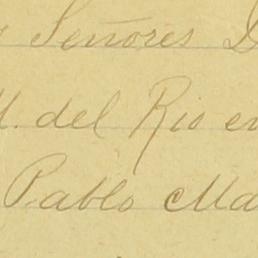 Señores D
M. del Rio en
Pablo Ma